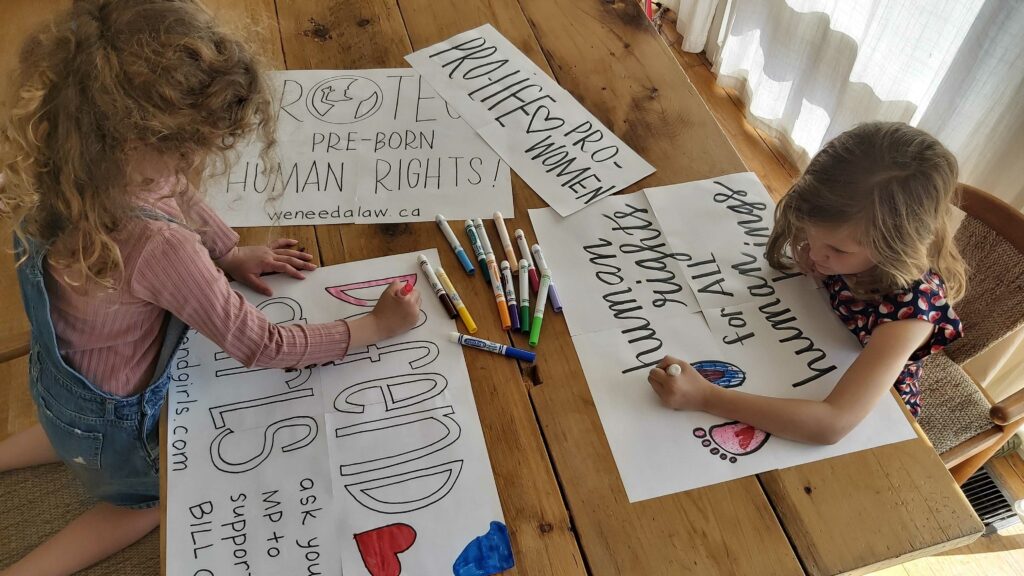 ROTEC
PRE-BORN
HUMAN RIGHTS!
weneedalaw.ca
PRO-LIFE
PRO-
WOMEN
human
rights
for ALL
human
ings
DEFEND
GIRLS
endgirls.com
ask you
MP to
support
BILL